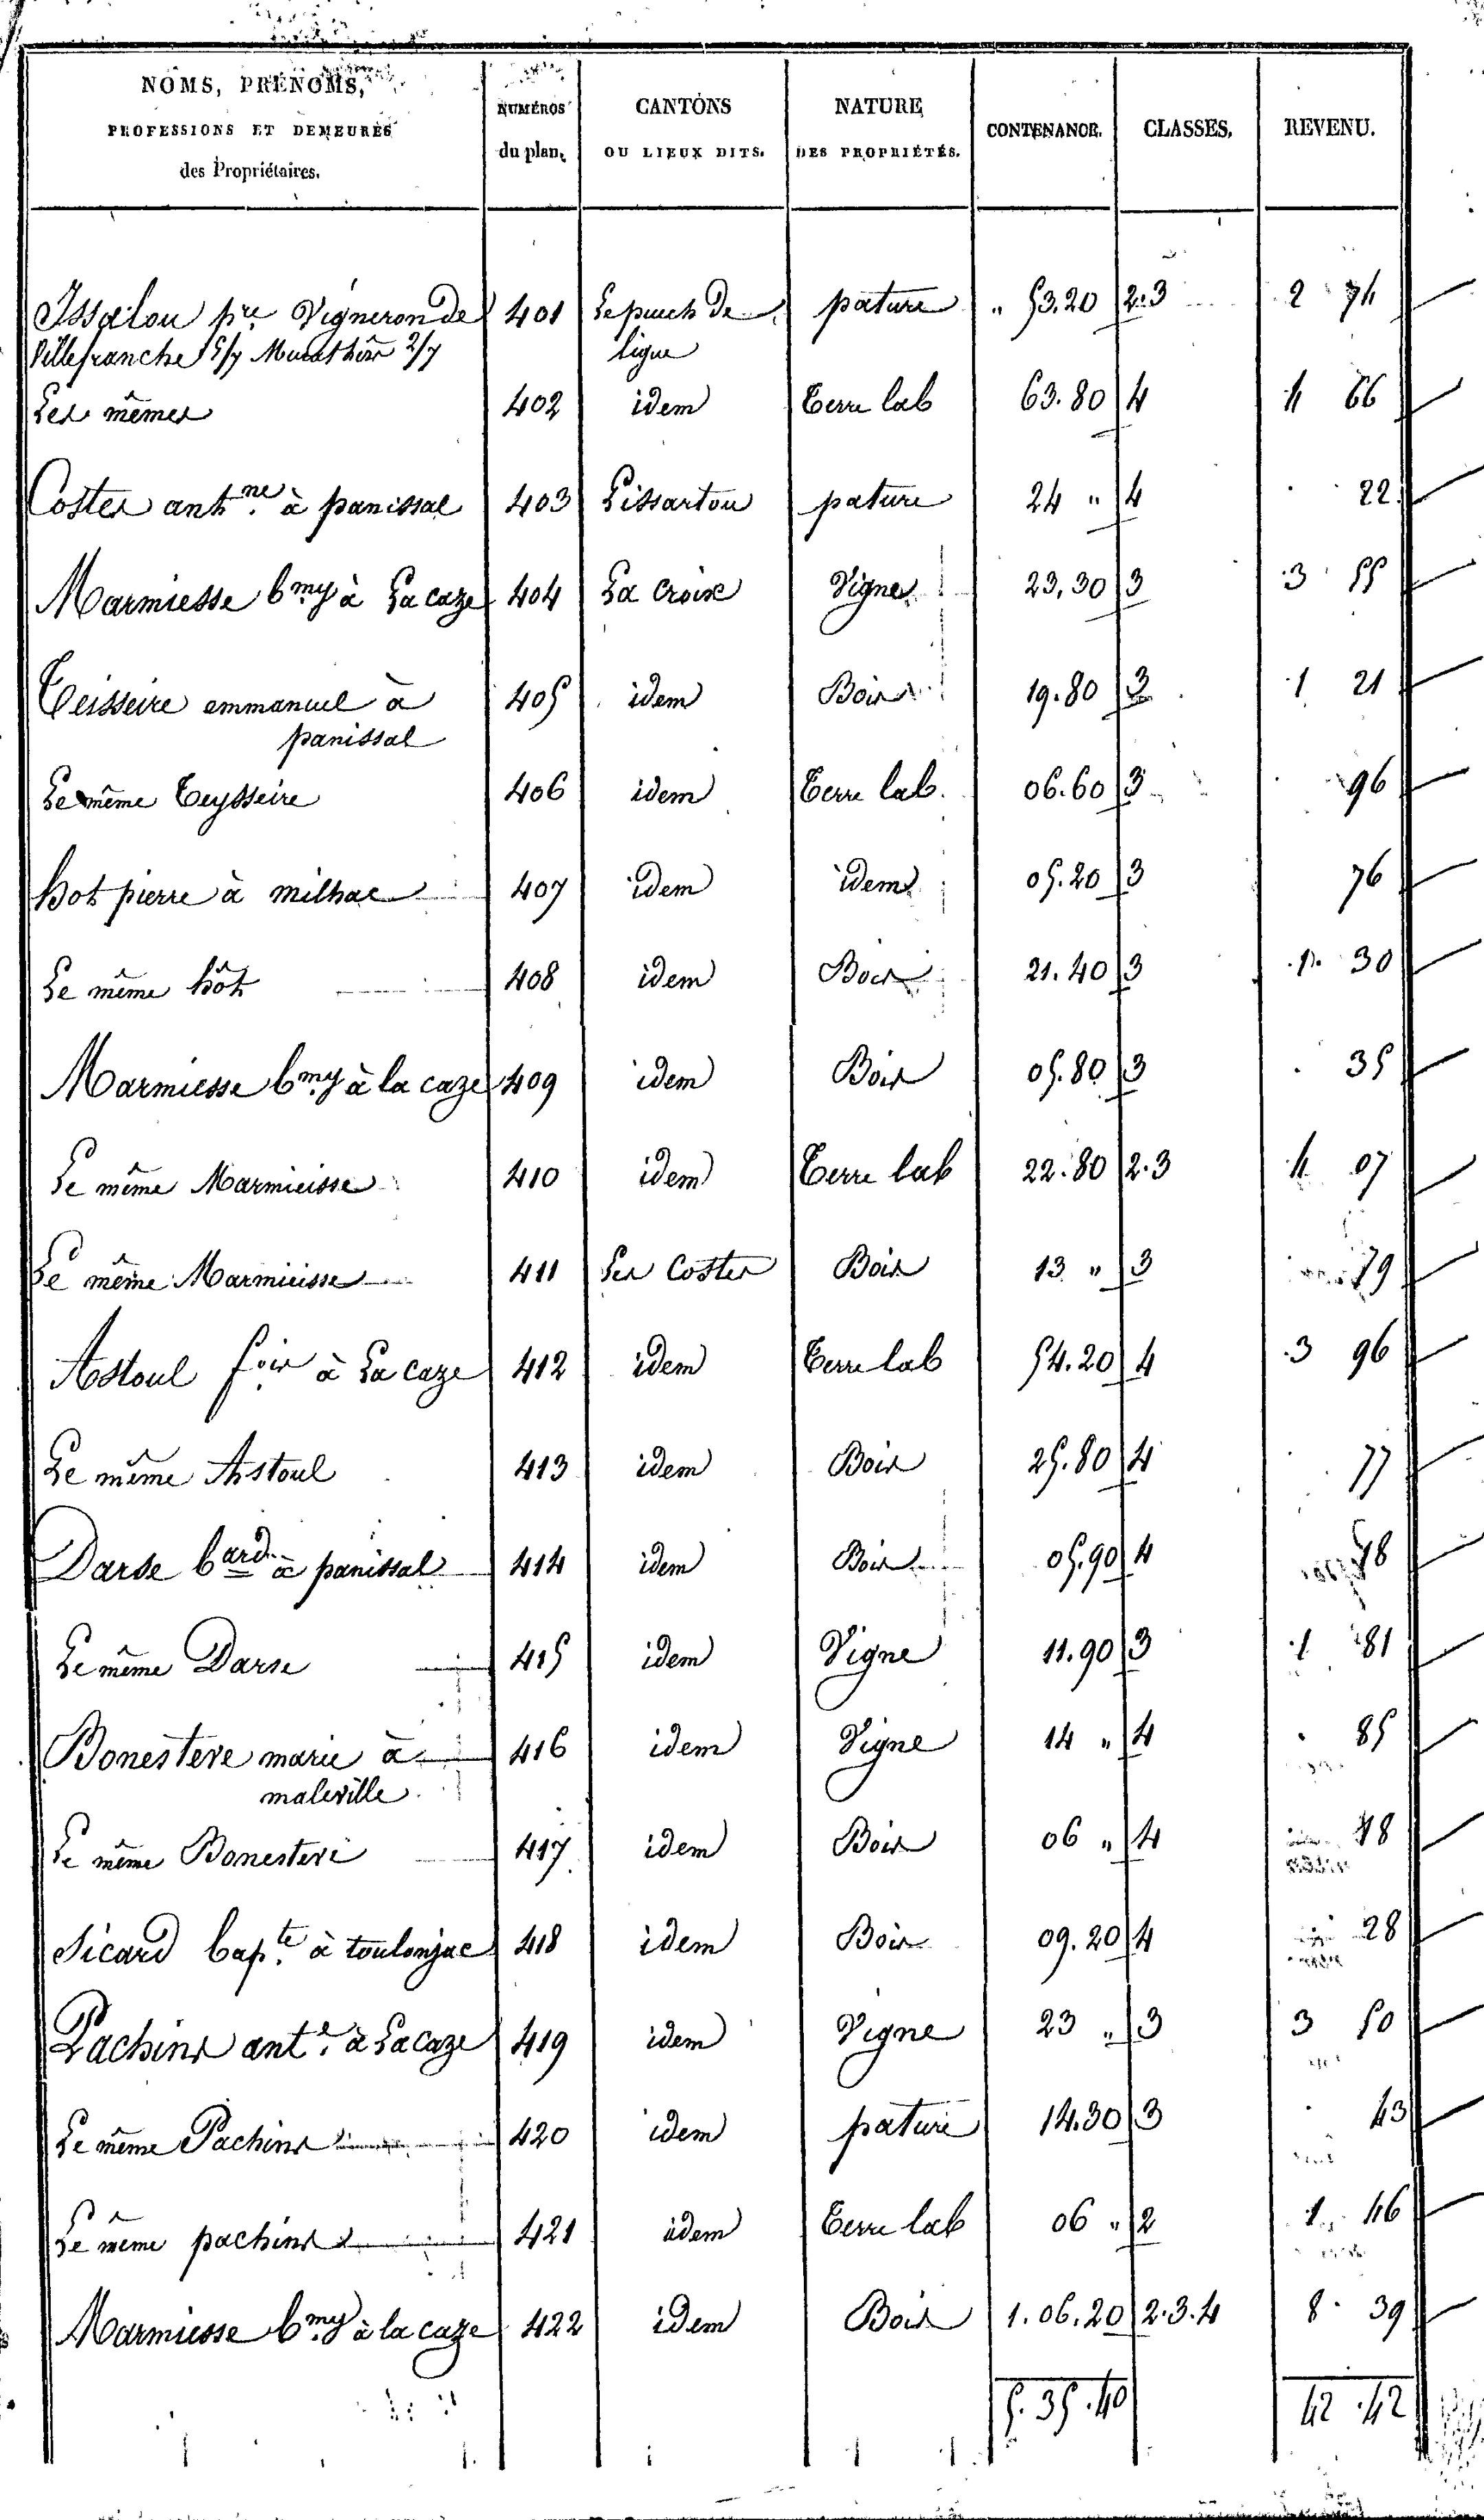 NOMS, PRÉNOMS, PROFESSIONS ET DEMEURES des Propriétaires. | NUMÉROS du plan. | CANTONS OU LIEUX DITS. | NATURE DES PROPRIÉTÉS. | CONTENANCE. | CLASSES. | REVENU.
Issalou pre Vigneron de | 401 | Le puech de | pature | " 53.20 | 2.3 | 2 74
Villefranche 5/7 Murat 2/7 | ligue
Les mêmes | 402 | idem | Terre lab | 63.80 | 4 | 4 66
Costes antne à panissal | 403 | Lissartou | pature | 24 " | 4 | 22
Marmiesse bmy à La caze | 404 | La croix | Vigne | 23,30 | 3 | 3 55
Teisseire emmanuel à | 405 | idem | Bois | 19.80 | 3 | 1 21
panissal
Le même Teysseire | 406 | idem | Terre lab. | 06.60 | 3 | 96
hot pierre à milhac | 407 | idem | idem | 05.20 | 3 | 76
Le même hôt | 408 | idem | Bois | 21.40 | 3 | 1. 30
Marmiesse bmy à la caze | 409 | idem | Bois | 05.80 | 3 | 35
Le même Marmieisse | 410 | idem | Terre lab | 22.80 | 2.3 | 4 07
Le même Marmieisse | 411 | Les Costes | Bois | 13 " | 3 | 79
Astoul fois à La caze | 412 | idem | Terre lab | 54.20 | 4 | 3 96
Le même Astoul | 413 | idem | Bois | 25.80 | 4 | 77
Darse bard à panissal | 414 | idem | Bois | 05.90 | 4 | 18
Le même Darse | 415 | idem | Vigne | 11.90 | 3 | 1 81
Bonesteve marie à | 416 | idem | Vigne | 14 " | 4 | 85
maleville
Le même Bonesteve | 417 | idem | Bois | 06 " | 4 | 18
Sicard bapte à toulonjac | 418 | idem | Bois | 09.20 | 4 | 28
Pachins ante à La caze | 419 | idem | Vigne | 23 " | 3 | 3 50
Le même Pachins | 420 | idem | pature | 14.30 | 3 | 43
Le même pachins | 421 | idem | Terre lab | 06 " | 2 | 1 46
Marmiesse bmy à la caze | 422 | idem | Bois | 1.06.20 | 2.3.4 | 8 39
5.35.40 | 42.42